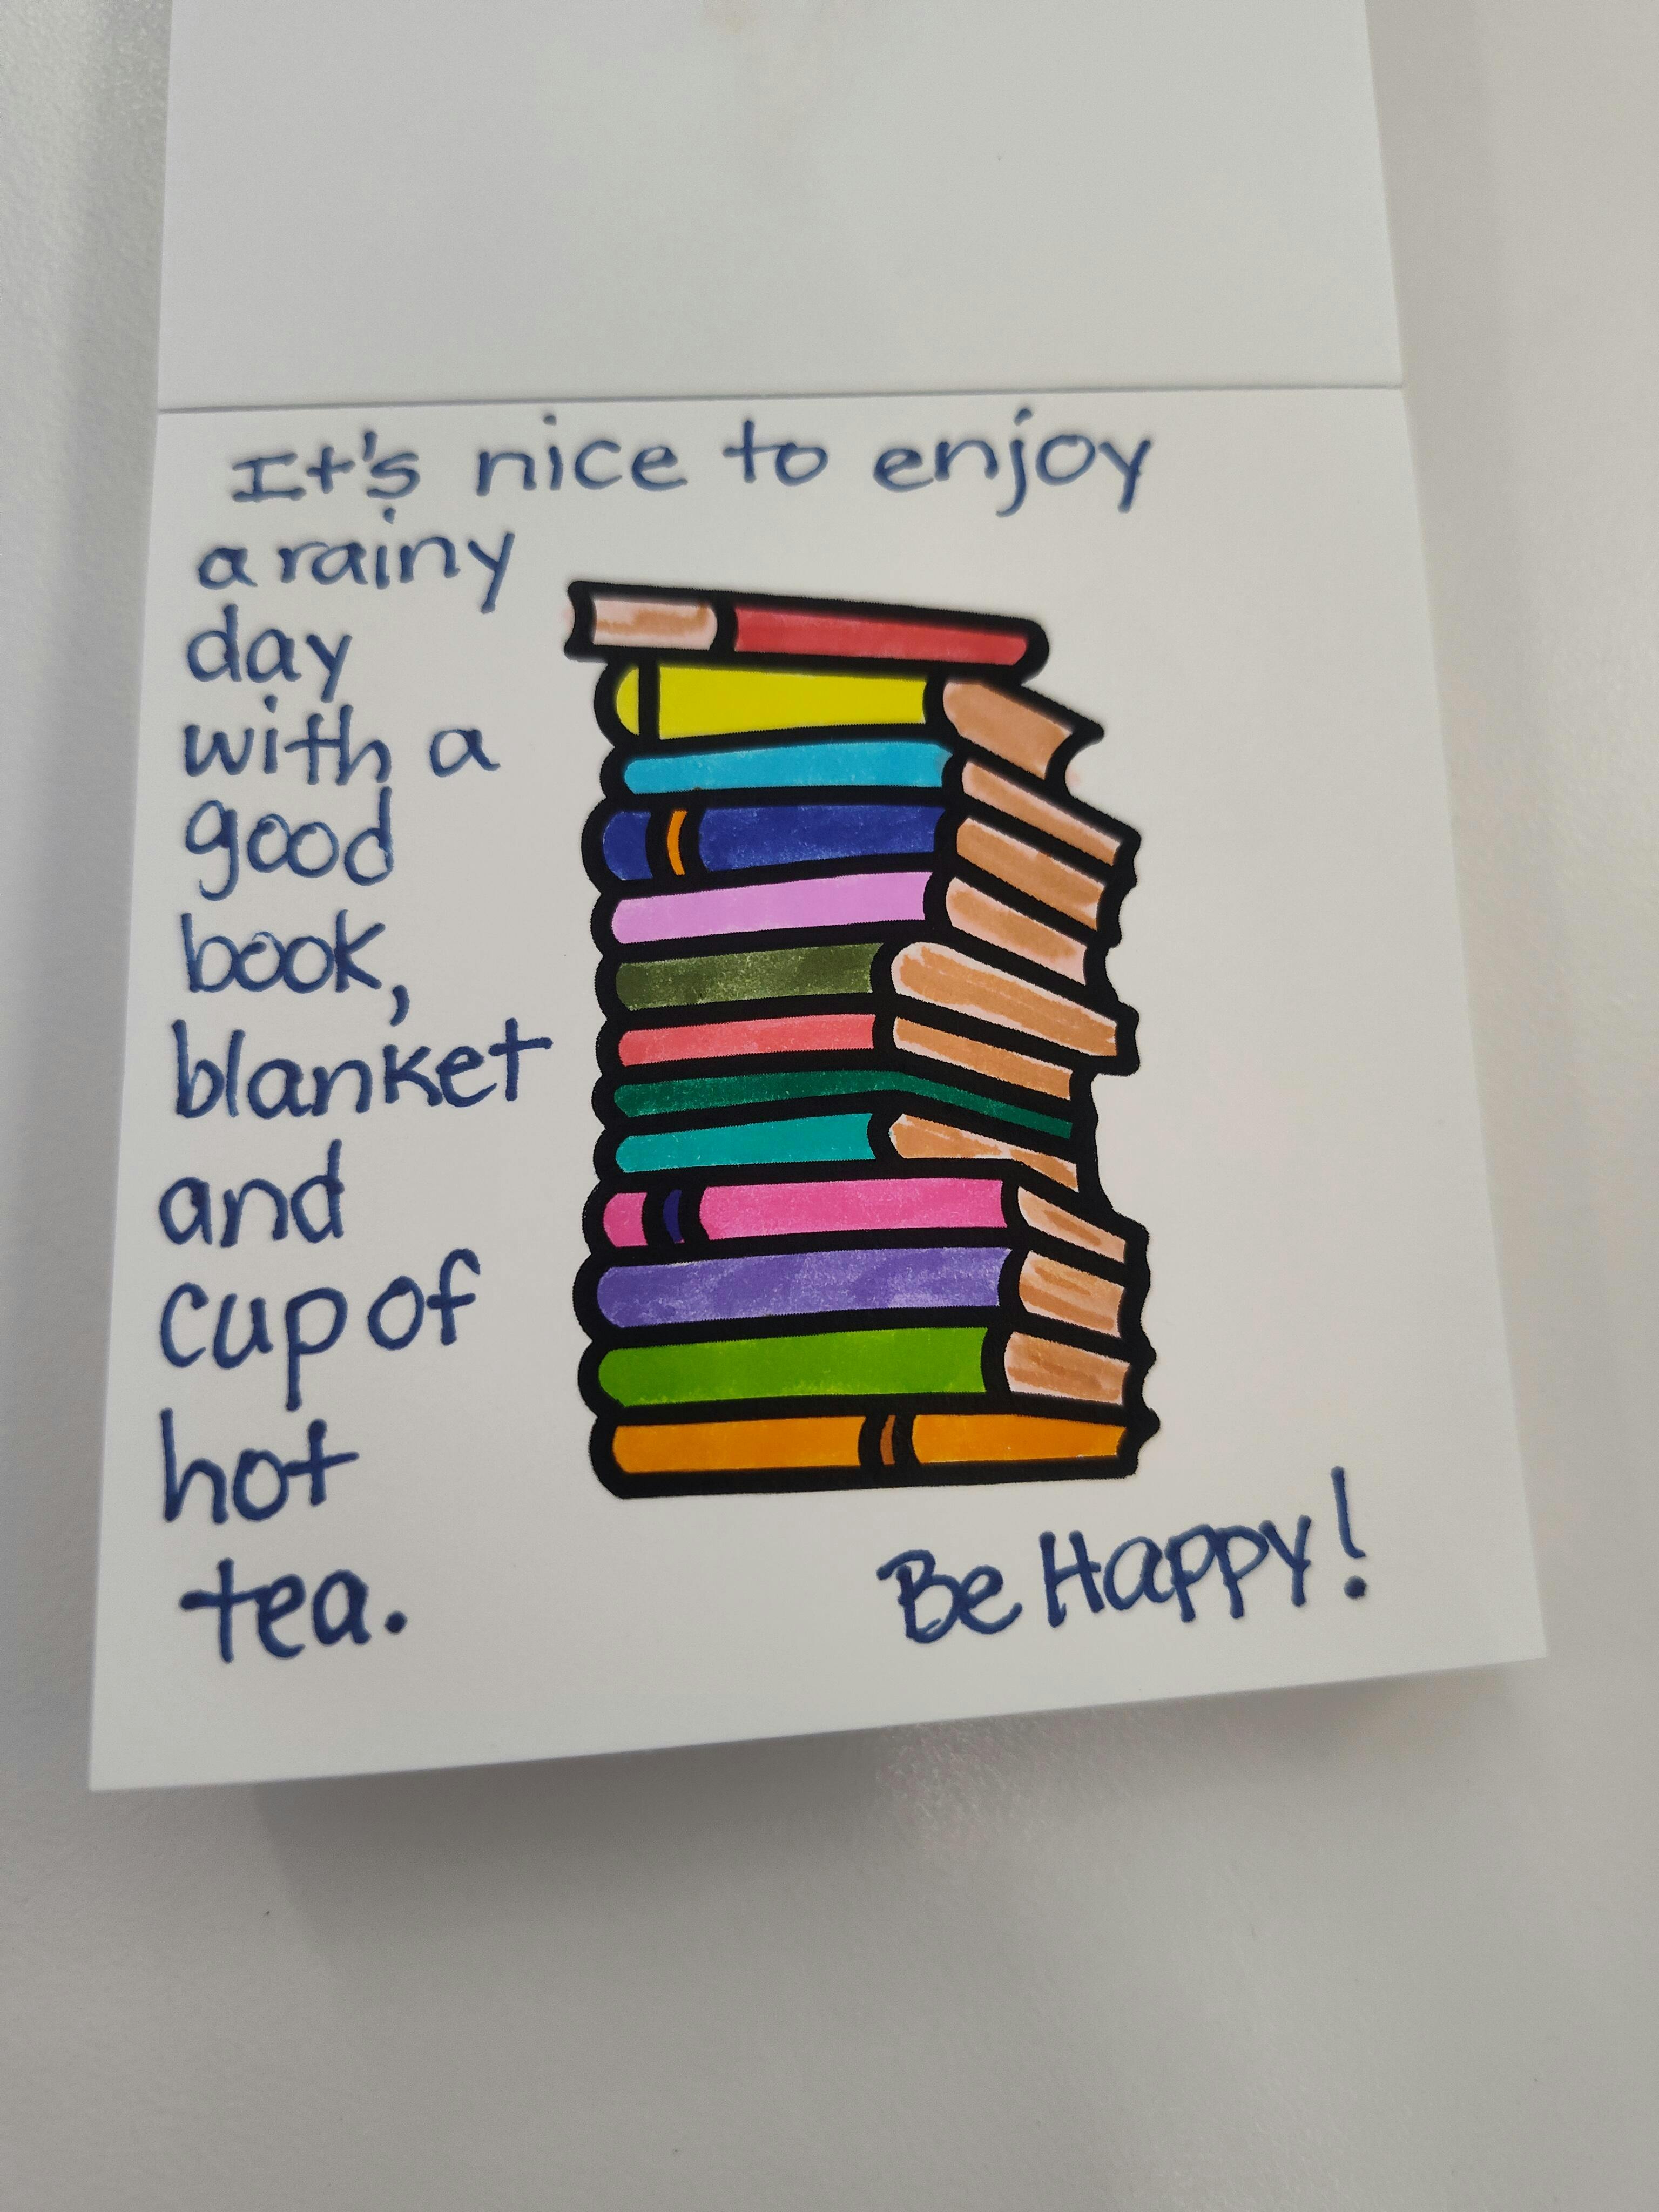 It's nice to enjoy
a rainy
day
with a
good
book,
blanket
and
cup of
hot
tea.
Be Happy!